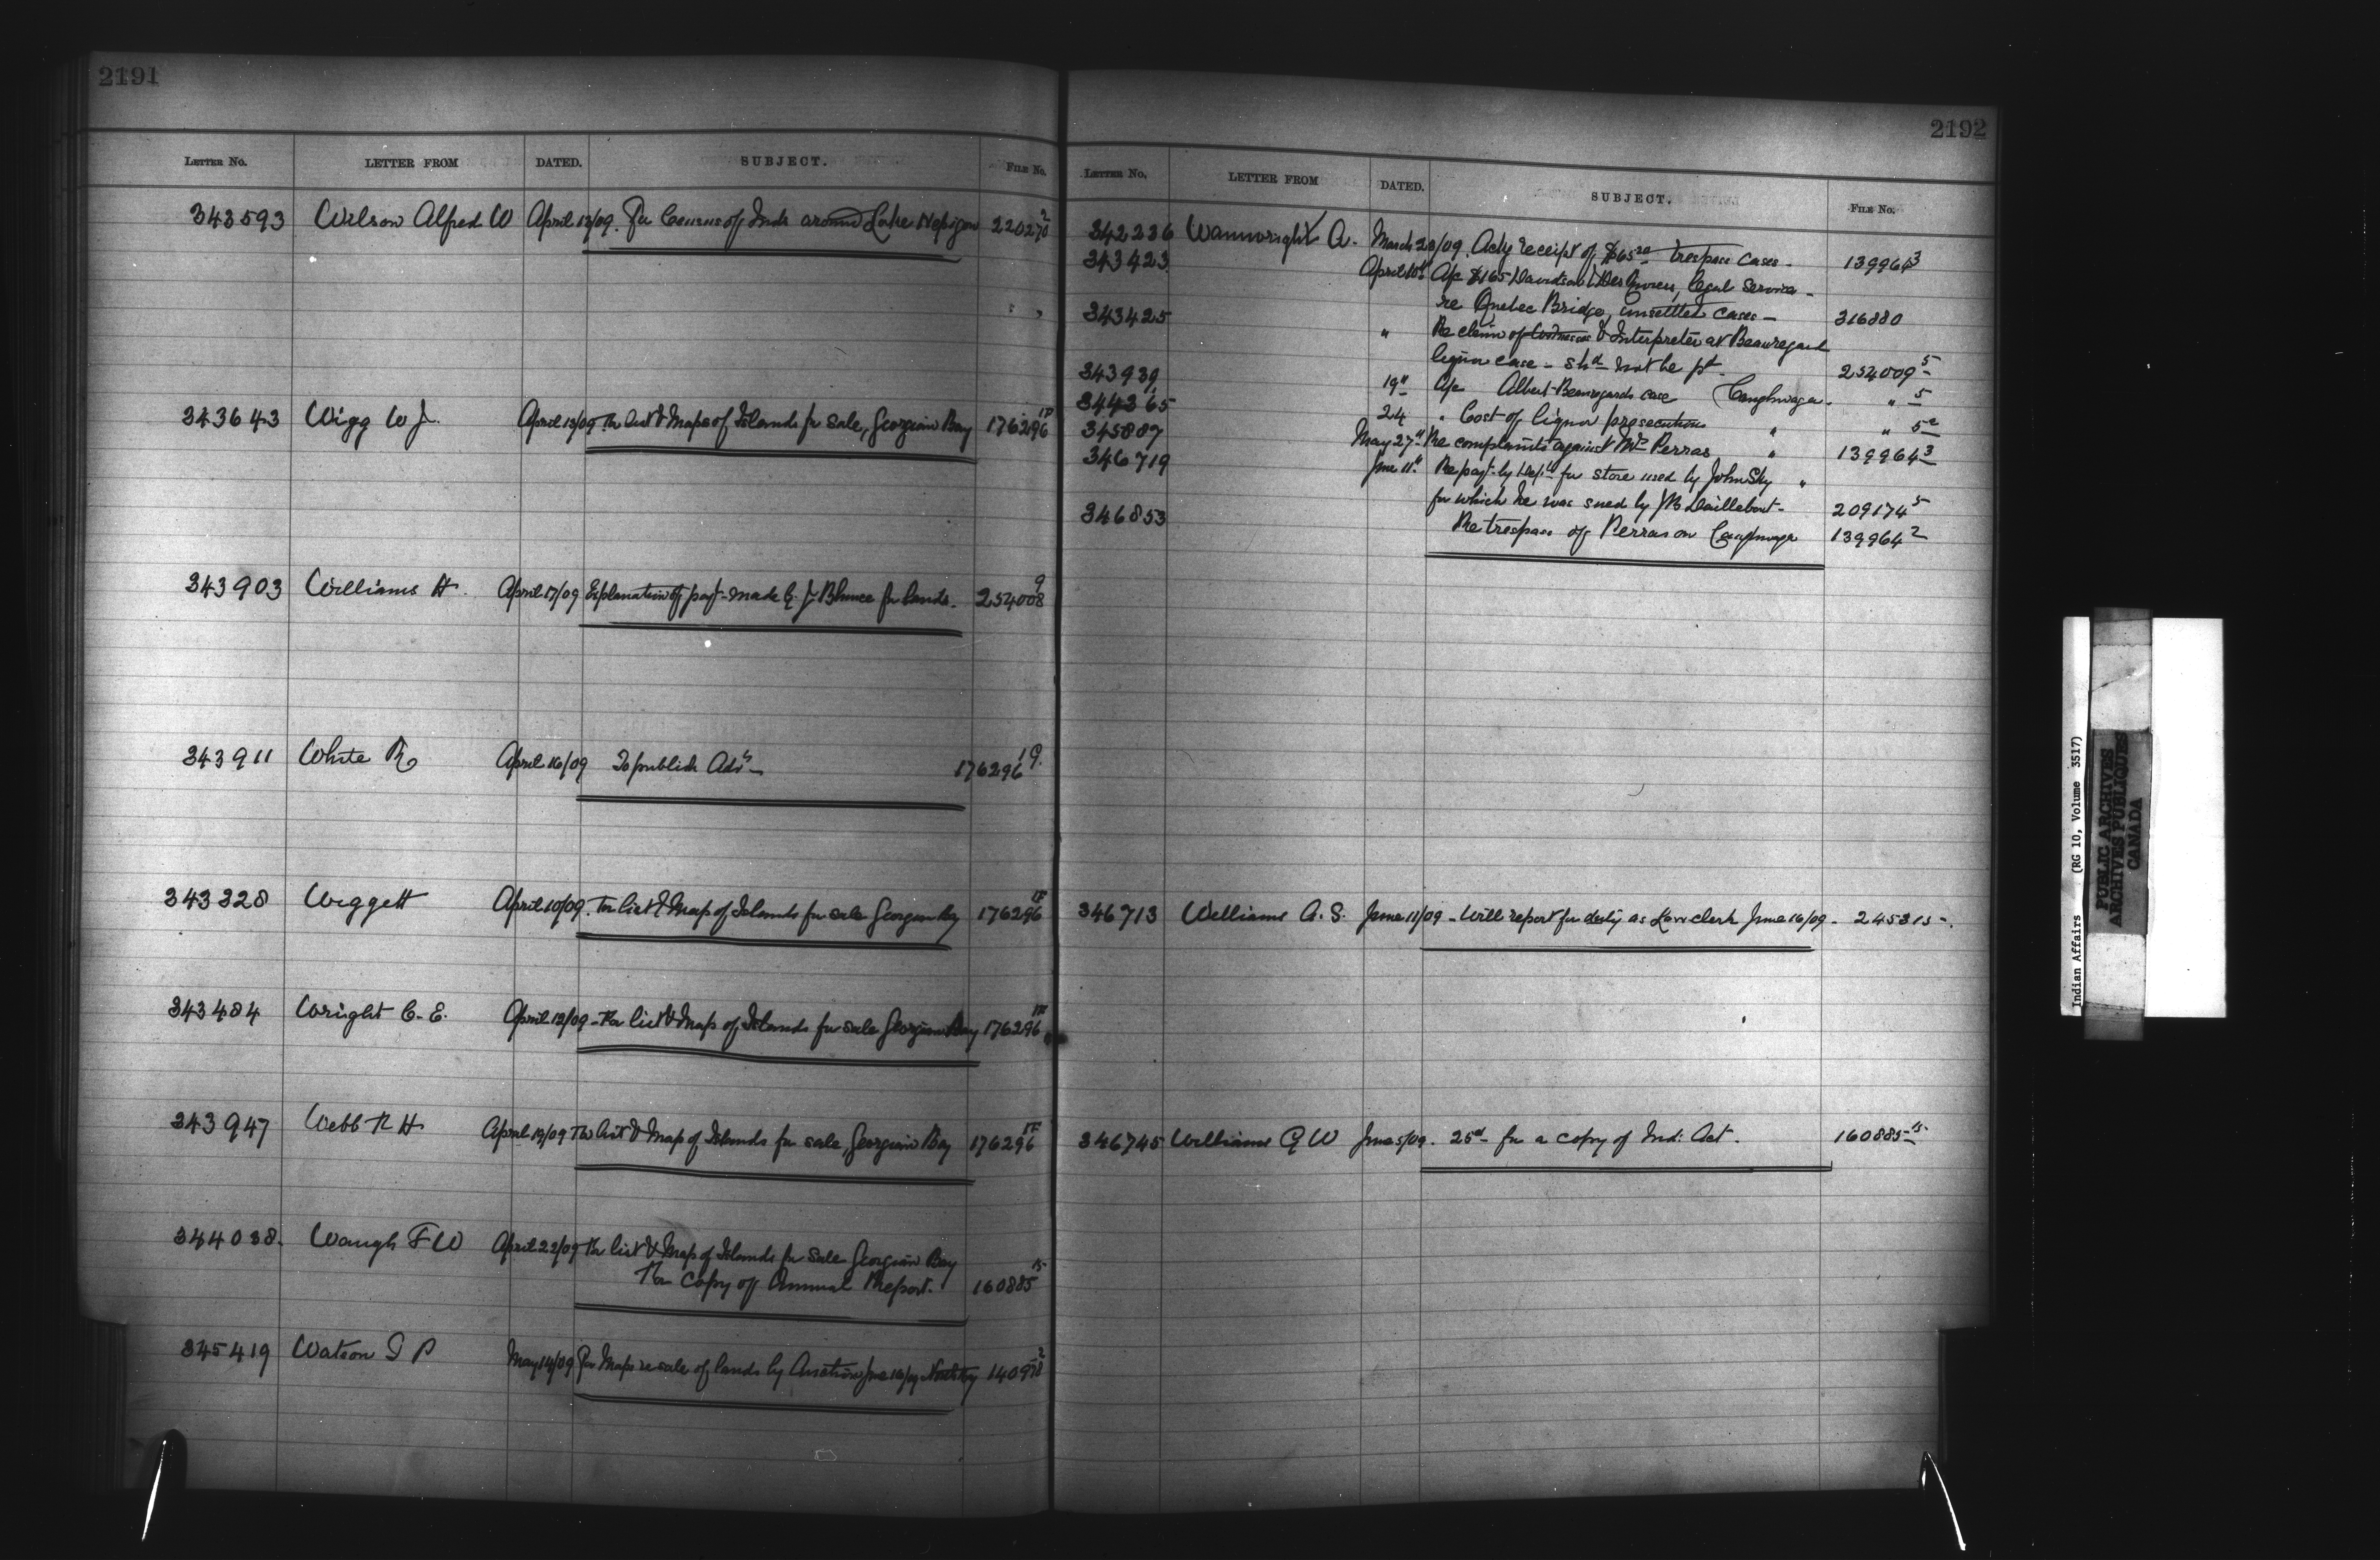 2191
LETTER NO. LETTER FROM DATED. SUBJECT. FILE NO.
343593 Wilson Alfred W April 13/09. For Census of Inds around Lake Nepigon 220270 2
343643 Wigg W J. April 13/09 For list & Maps of Islands for sale, Georgian Bay 176296 1F
343903 Williams H. April 17/09 Explanation of payt. made by J for lands. 254008 9
343911 White R April 16/09 To publish Advt 176296 1G
343328 Wiggett April 10/09. For list & Map of Islands for sale Georgian Bay 176296 1F
343484 Wright C. E. April 12/09 - For list & Map of Islands for sale Georgian Bay 176296 1F
343947 Webb R H April 19/09 For list & Map of Islands for sale, Georgian Bay 176296 1F
344038. Waugh F W April 22/09 For list & Map of Islands for sale Georgian Bay
For copy of Annual Report. 160885 15
345419 Watson P May 14/09 For Maps re sale of lands by Auction June 16/09 140978 2
2192
LETTER NO. LETTER FROM DATED. SUBJECT. FILE NO.
342236 Wainwright A. March 20/09. Ackg receipt of $65 trespass cases - 139964 3
343423 April 10" A/c $165 Davidson legal Services -
re Quebec Bridge, unsettled cases - 316880
343425 " Re claim of Witnesses & Interpreter at Beauregard
liquor case - shd not be pd. 254009 5
343939 19" A/c Albert Beauregards case Caughnaga - " 5
344365 24 " Cost of liquor prosecutions " " 5
345887 May 27" Re complaints against Mr Perras " 139964 3
346719 June 11" Re payt. by Dept for stove used by John Sky "
for which he was sued by M Daillebout - 209174 5
346853 Re trespass of Perras on Caughnaga 139964 2
346713 Williams A. S. June 11/09 - Will report for duty as Law clerk June 16/09 - 245315 -
346745 Williams G W June 5/09. 25d for a copy of Ind: Act. 160885 15
Indian Affairs (RG 10, Volume 3517)
PUBLIC ARCHIVES
ARCHIVES PUBLIQUES
CANADA